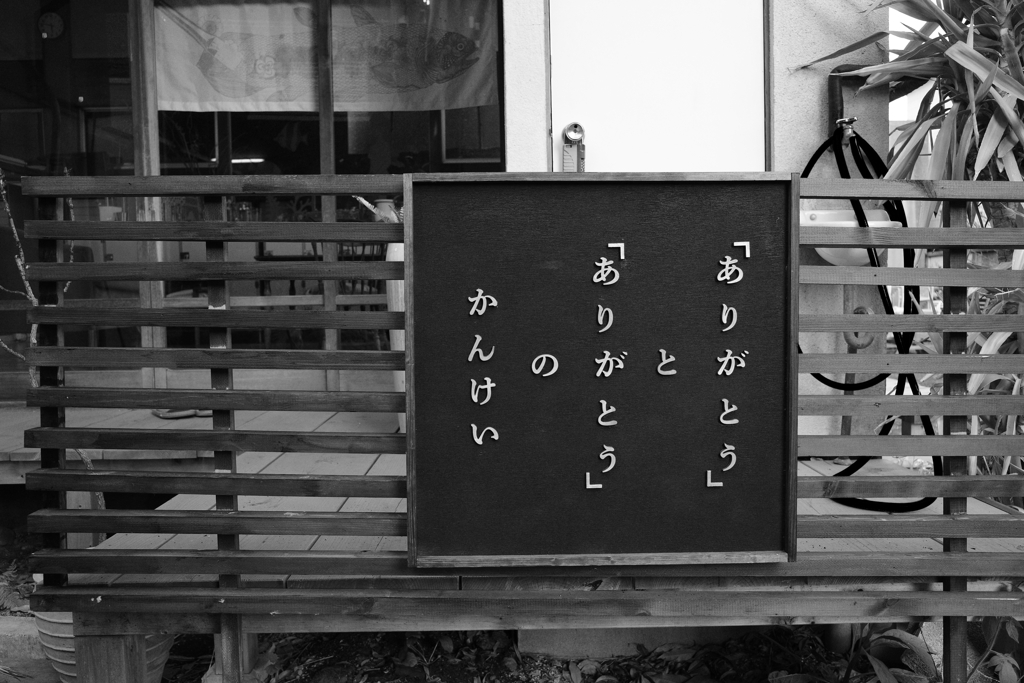 「ありがとう」
と
「ありがとう」
の
かんけい